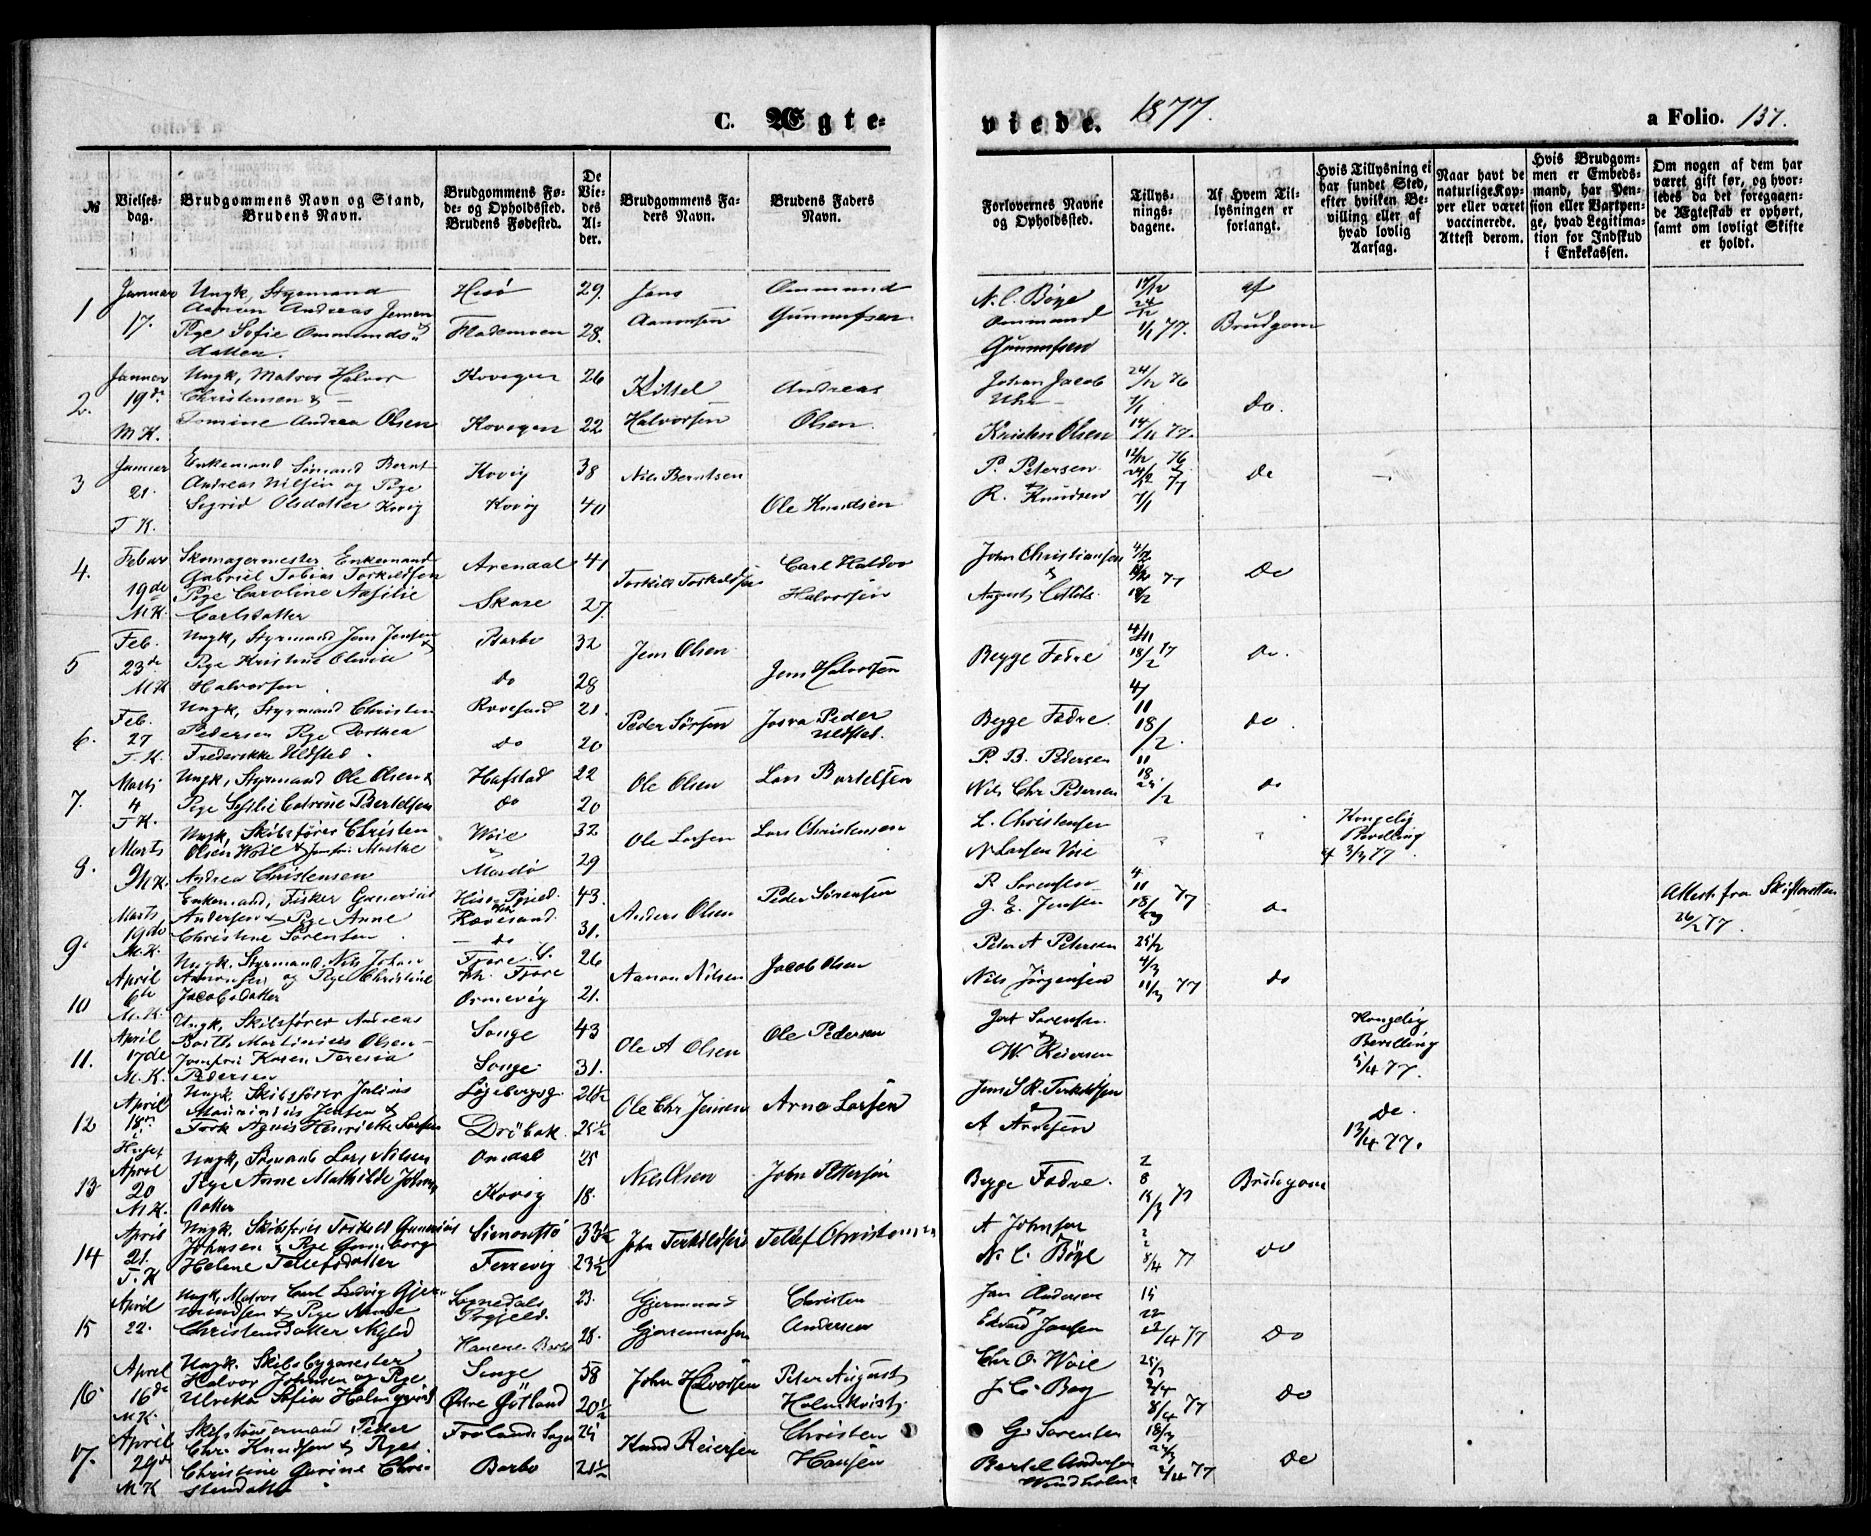 C. Ægte-
viede. 1877.
a Folio. 137.
№
Vielses-
dag.
Brudgommens Navn og Stand,
Brudens Navn.
Brudgommens Fø-
de- og Opholdssted.
Brudens Fødested.
De
Vie-
des
Al-
der.
Brudgommens Fa-
ders Navn.
Brudens Faders
Navn.
Forlovernes Navne
og Opholdssted.
Tillys-
nings-
dagene.
Af Hvem Til-
lysningen er
forlangt.
Hvis Tillysning ei
har fundet Sted,
efter hvilken Be-
villing eller af
hvad lovlig
Aarsag.
Naar havt de
naturlige Kop-
per eller været
vaccinerede.
Attest derom.
Hvis Brudgom-
men er Embeds-
mand, har Pen-
sion eller Vartpen-
ge, hvad Legitima-
tion for Indskud
i Enkekassen.
Om nogen af dem har
været gift før, og hvor-
ledes da det foregaaen-
de Ægteskab er ophørt,
samt om lovligt Skifte
er holdt.
1
Januar
17.
Ungk, Styrmand
Aanon Andreas Jensen
Pige Sofie Ommunds-
datter.
Hisø
Flademoen
29.
28.
Jens
Aanonsen
Ommund
Gunnufsen
N. C. Bøge
Ommund
Gunnufsen
17/12
24/12
1/1 77.
af
Brudgom
2.
Januar
19de
M K.
Ungk, Matros Halvor
Christensen &
Tomine Andrea Olsen
Kovegen
Kovegen
26
22
Kittel
Halvorsen
Andreas
Olsen.
Johan Jacob
Uhr
Kristen Olsen
24/12 76
1/1
14/11 77.
do.
3
Januar
21.
T K.
Enkemand Sømand Bernt
Andreas Nilsen og Pige
Sigrid Olsdatter Kovig
Kovig
Kovig
38
40
Nils Berntsen
Ole Knudsen
P. Petersen
R. Knudsen
12/12 76
24/12
7/1 77
do
4.
Febuar
19de
M K.
Skomagermester Enkemand
Gabriel Tobias Torkildsen
Pige Caroline Aasilie
Carlsdatter
Arendal
Skare
41
27.
Torkild Torkildsen
Carl Haldvo
Halvorsen
John Christiansen
&
August
18/2 77
Do
5
Feb.
23de
M K
Ungk, Styrmand Jens Jensen &
Pige Kristine Olivia
Halvorsen
Barbo
do
32
28
Jens Olsen
Jens Halvorsen
Begge Fædre
4/11
18/2 77
do.
6.
Feb.
27
T. K.
Ungk, Styrmand Christen
Pedersen Pige Dorthea
Frederikke Udsted.
Revesand
do
21.
20
Peder Sørsen
Josva Peder
Udsted.
Begge Fædre.
4/
11
18/2.
do
7.
Marts
4
T K.
Ungk, Styrmand Ole Olsen &
Pige Sofie Catrine Bertelsen
Hafstad
do
22
20
Ole Olsen
Lars Bertelsen
P. B. Pedersen
Nils Chr Pedersen
11
18
25/2
do
8.
Marts
M K.
Ungk, Skibsfører Christen
Olsen Woie & Jomfru Marthe
Andrea Christensen
Woie
Mærdø
32
29
Ole Larsen
Lars Christensen
L. Christensen
N Larsen Voie
"
"
Kongelig
Bevilling
af 3/3 77.
9.
Marts
19de
M. K.
Enkemand, Fisker Gunerius
Andersen & Pige Anne
Christine Sørensen
Hisø Pgjeld.
Revesand
do
43.
31.
Anders Olsen
Peder Sørensen
P. Sørensen
G. E. Jensen
4
11
18/3 77
do
Attest fra Skifteretten
26/2 77.
10
April
6te
M. K.
Ungk. Styrmand Nils Johan
Aanonsen og Pige Christine
Jacobsdatter
Ormevig
26
21.
Aanon Nilsen
Jacob Olsen
Peter A Petersen
Nils Jørgensen
25/2
4/3
11/3 77
do
11.
April
17de
M. K.
Ungk, Skibsfører Andreas
Barth Martinius Olsen
Jomfru Karen Teresia
Pedersen
Songe
Songe
43
31.
Ole A Olsen
Ole Pedersen
Sørensen
&
W. Reiersen
Kongelig
Bevilling
5/4 77.
12
April
18de
i
Huset
Ungk. Skibsfører Julius
Jensen &
Frøk Agnis Henriette Larsen
Drøbak
26½
25½
Ole Chr Jensen
Arne Larsen
Jens S R. Terkildsen
&
A Arnesen
Do.
13/4 77.
13
April
20
M K.
Ungk, Sømand Lars Nilsen
Pige Anne Mathilde Johns
datter
Omdal
Kovig
25
18.
Nils Olsen
John Pettersen
Begge Fædre.
2
8
18/3 77
Brudgom
14
April
21.
T. K
Ungk. Skibsfører Torkild Gunnius
Johnsen & Pige Gunnborg
Helene Tellefsdatter
Simonstø
Ferrevig
33½
23½
John Terkildsen
Tellef Christensen
A Johnsen
N. C. Bøge
2
2
8/4 77
do
15
April
22.
Ungk, Matros Carl Ludvig Gjer-
mundsen & Pige Anne
Christensdatter Nylid
Sognedals
Prgjeld.
23.
28.
Gjermund
Gjeremundsen
Christen
Andersen
Jan Andersen
&
Edvard Jansen
15
22
22/4 77
Do
16.
April
16de
M K.
Ungk. Skibsbygmester
Halvor Johnsen og Pige
Ulrika Sofia Holmqvist
Songe
Østre Götland
58
20½
John Halvorsen
Peter August
Holmkvist
Chr O. Woie
J. C. Bøg
25/3
2/4
8/4 77
Do
17.
April
29de
M K
Skibstømmermand Peder
Chr. Knudsen & Pige
Christine Gurine Chri-
stendatter
Frolands Sogn
Barbo
25
21½
Knud Reiersen
Christen
Hansen
G. Sørensen
Bertel Andersen
Windholm
18/3
2/4 77
Do